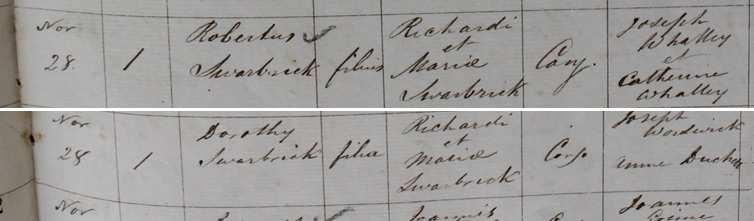 Nov
28
1
Robertus
Swarbrick
filius
Richardi
et
Mariæ
Swarbrick
Conj.
Joseph
Whalley
et
Catherine
Whalley
Nov
28
1
Dorothy
Swarbrick
filia
Richardi
et
Mariæ
Swarbrick
Conj.
Joseph
Worswick
Anne
Nov
Joannis
Joannes